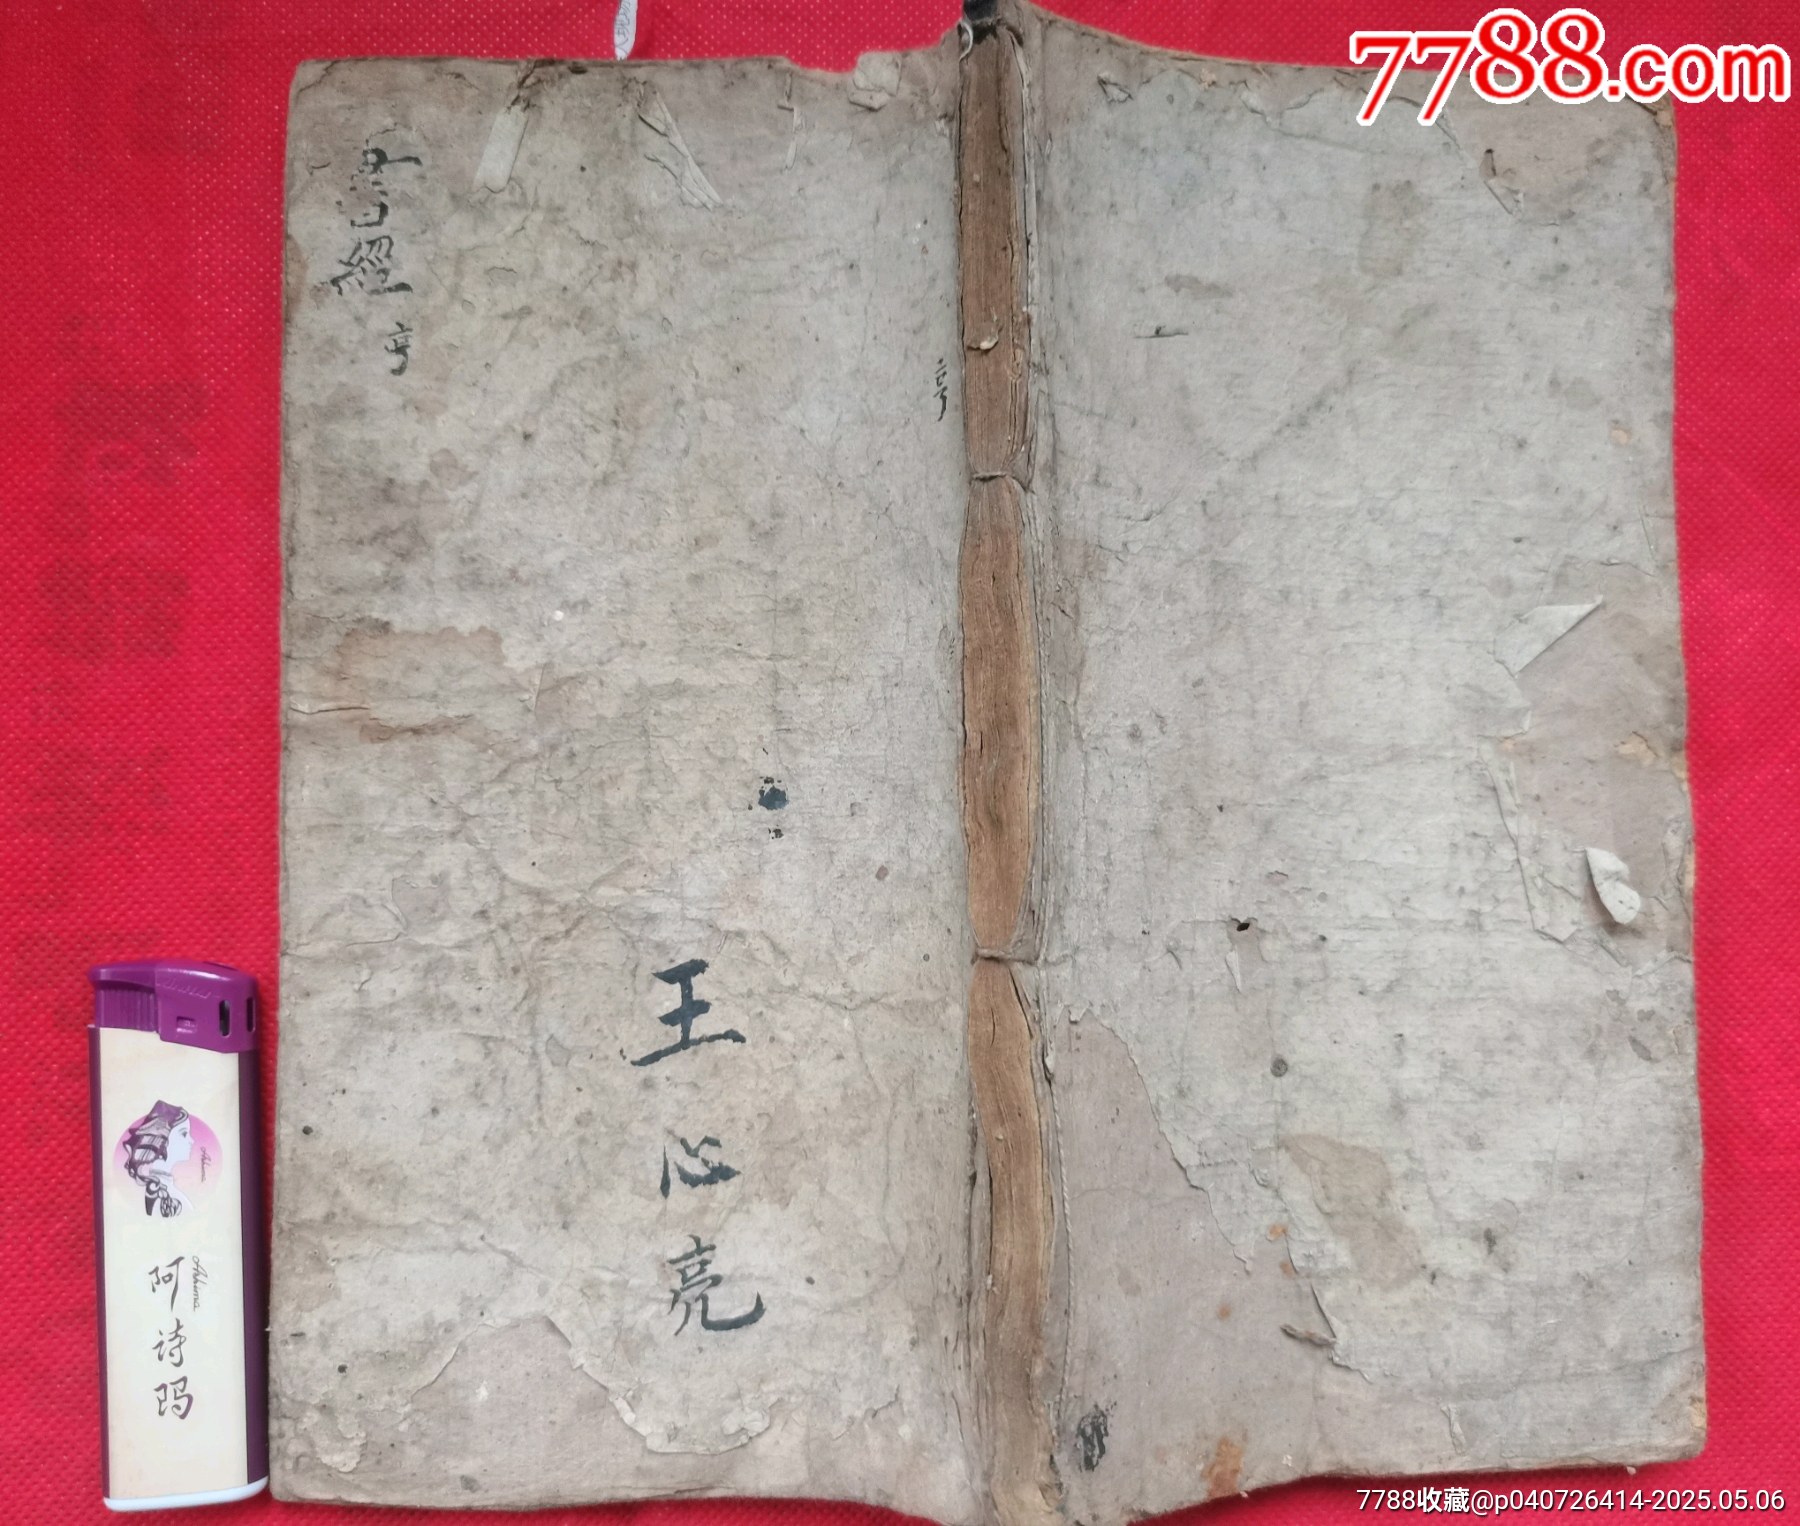 7788.com
經 亨
亨
王心亮
Ashima
Ashima
阿诗玛
7788收藏@p040726414-2025.05.06